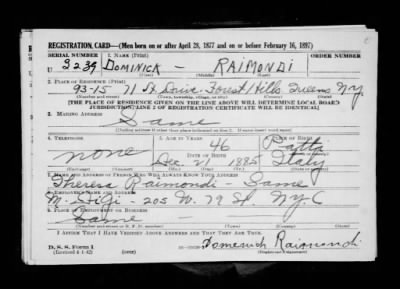 REGISTRATION CARD—(Men born on or after April 28, 1877 and on or before February 16, 1897)
SERIAL NUMBER 1. NAME (Print) ORDER NUMBER
U 3239 DOMINICK - RAIMONDI
(First) (Middle) (Last)
2. PLACE OF RESIDENCE (Print)
93-15 71 Forest Hills Queens N.Y.
(Number and street) (Town, township, village, or city) (County) (State)
[THE PLACE OF RESIDENCE GIVEN ON THE LINE ABOVE WILL DETERMINE LOCAL BOARD
JURISDICTION; LINE 2 OF REGISTRATION CERTIFICATE WILL BE IDENTICAL]
3. MAILING ADDRESS
Same
[Mailing address if other than place indicated on line 2. If same insert word same]
4. TELEPHONE 5. AGE IN YEARS 6. PLACE OF BIRTH
none 46 Patti
DATE OF BIRTH
Dec. 21 1885 Italy
7. NAME AND ADDRESS OF PERSON WHO WILL ALWAYS KNOW YOUR ADDRESS
Theresa Raimondi - Same
8. EMPLOYER'S NAME AND ADDRESS
205 W. 79 St. NYC
9. PLACE OF EMPLOYMENT OR BUSINESS
Same
(Number and street or R. F. D. number) (Town) (County) (State)
I AFFIRM THAT I HAVE VERIFIED ABOVE ANSWERS AND THAT THEY ARE TRUE.
D. S. S. Form 1
(Revised 4-1-42) (over) Domenick Raimondi
(Registrant's signature)